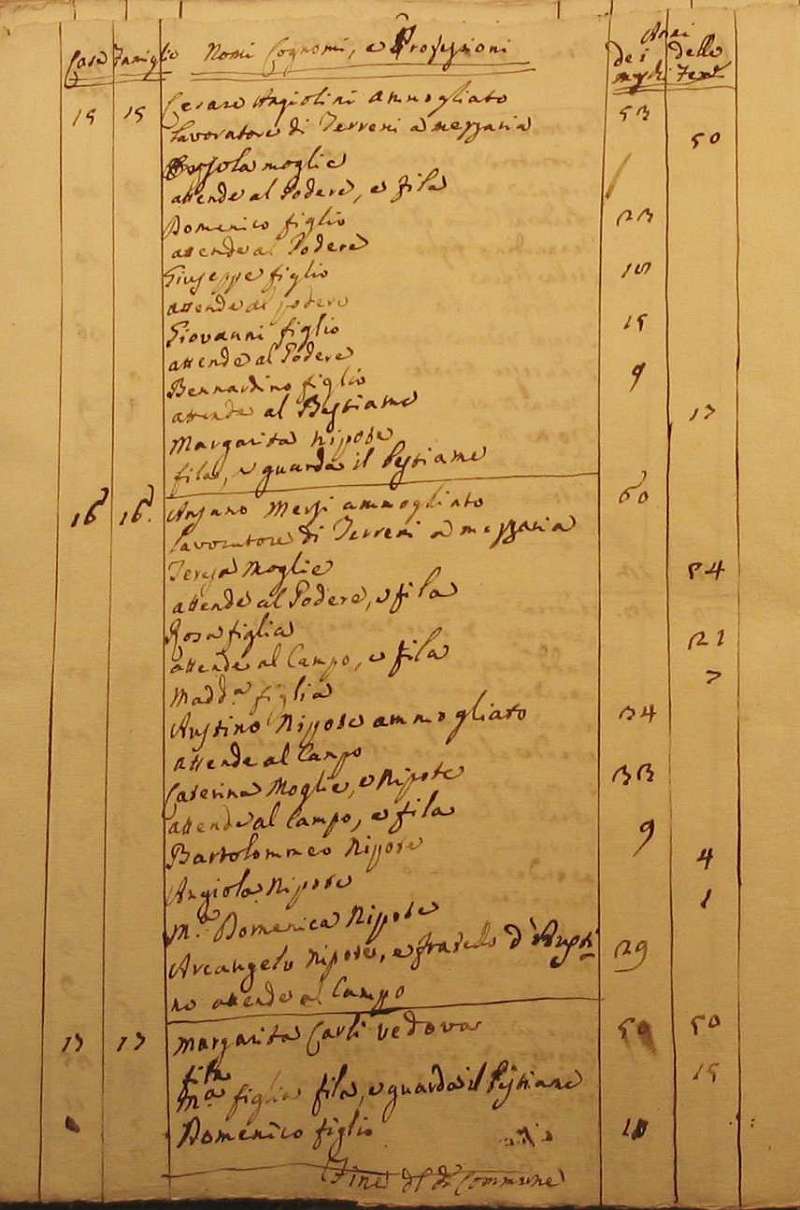 Case Famiglie Nomi Cognomi, e Professioni Anni dei maschi delle Fem.e
15 15 Cesare Angiolini ammogliato 53
Lavoratore di Terreni a mezzaria
Orsola moglie 50
attende al Podere, e fila
Domenico figlio 23
attende al Podere
Giuseppe figlio
attende al podere
Giovanni figlio 15
attende al Podere
Bernardino figlio 9
attende al Bestiame
Margarita Nipote 17
fila, e guarda il Bestiame
16 16. Ansano Mersi ammogliato 60
Lavoratore di Terreni a mezzaria
Teresa Moglie 54
attende al Podere, e fila
Rosa figlia 21
attende al Campo, e fila
Madd.a figlia 7
Austino Nippote ammogliato 34
attende al Campo
Caterina Moglie, e Nipote 33
attende al Campo, e fila
Bartolommeo Nippote 9
Angiola Nipote 4
M.a Domenica Nippote 1
Arcangelo Nipote, e fratello d'Austi 29
no attende al Campo
17 17 Margarita Carli vedova 50
fila
M.a figlia fila, e guarda il Bestiame 15
Domenico figlio 10
Fine del d.o Commune